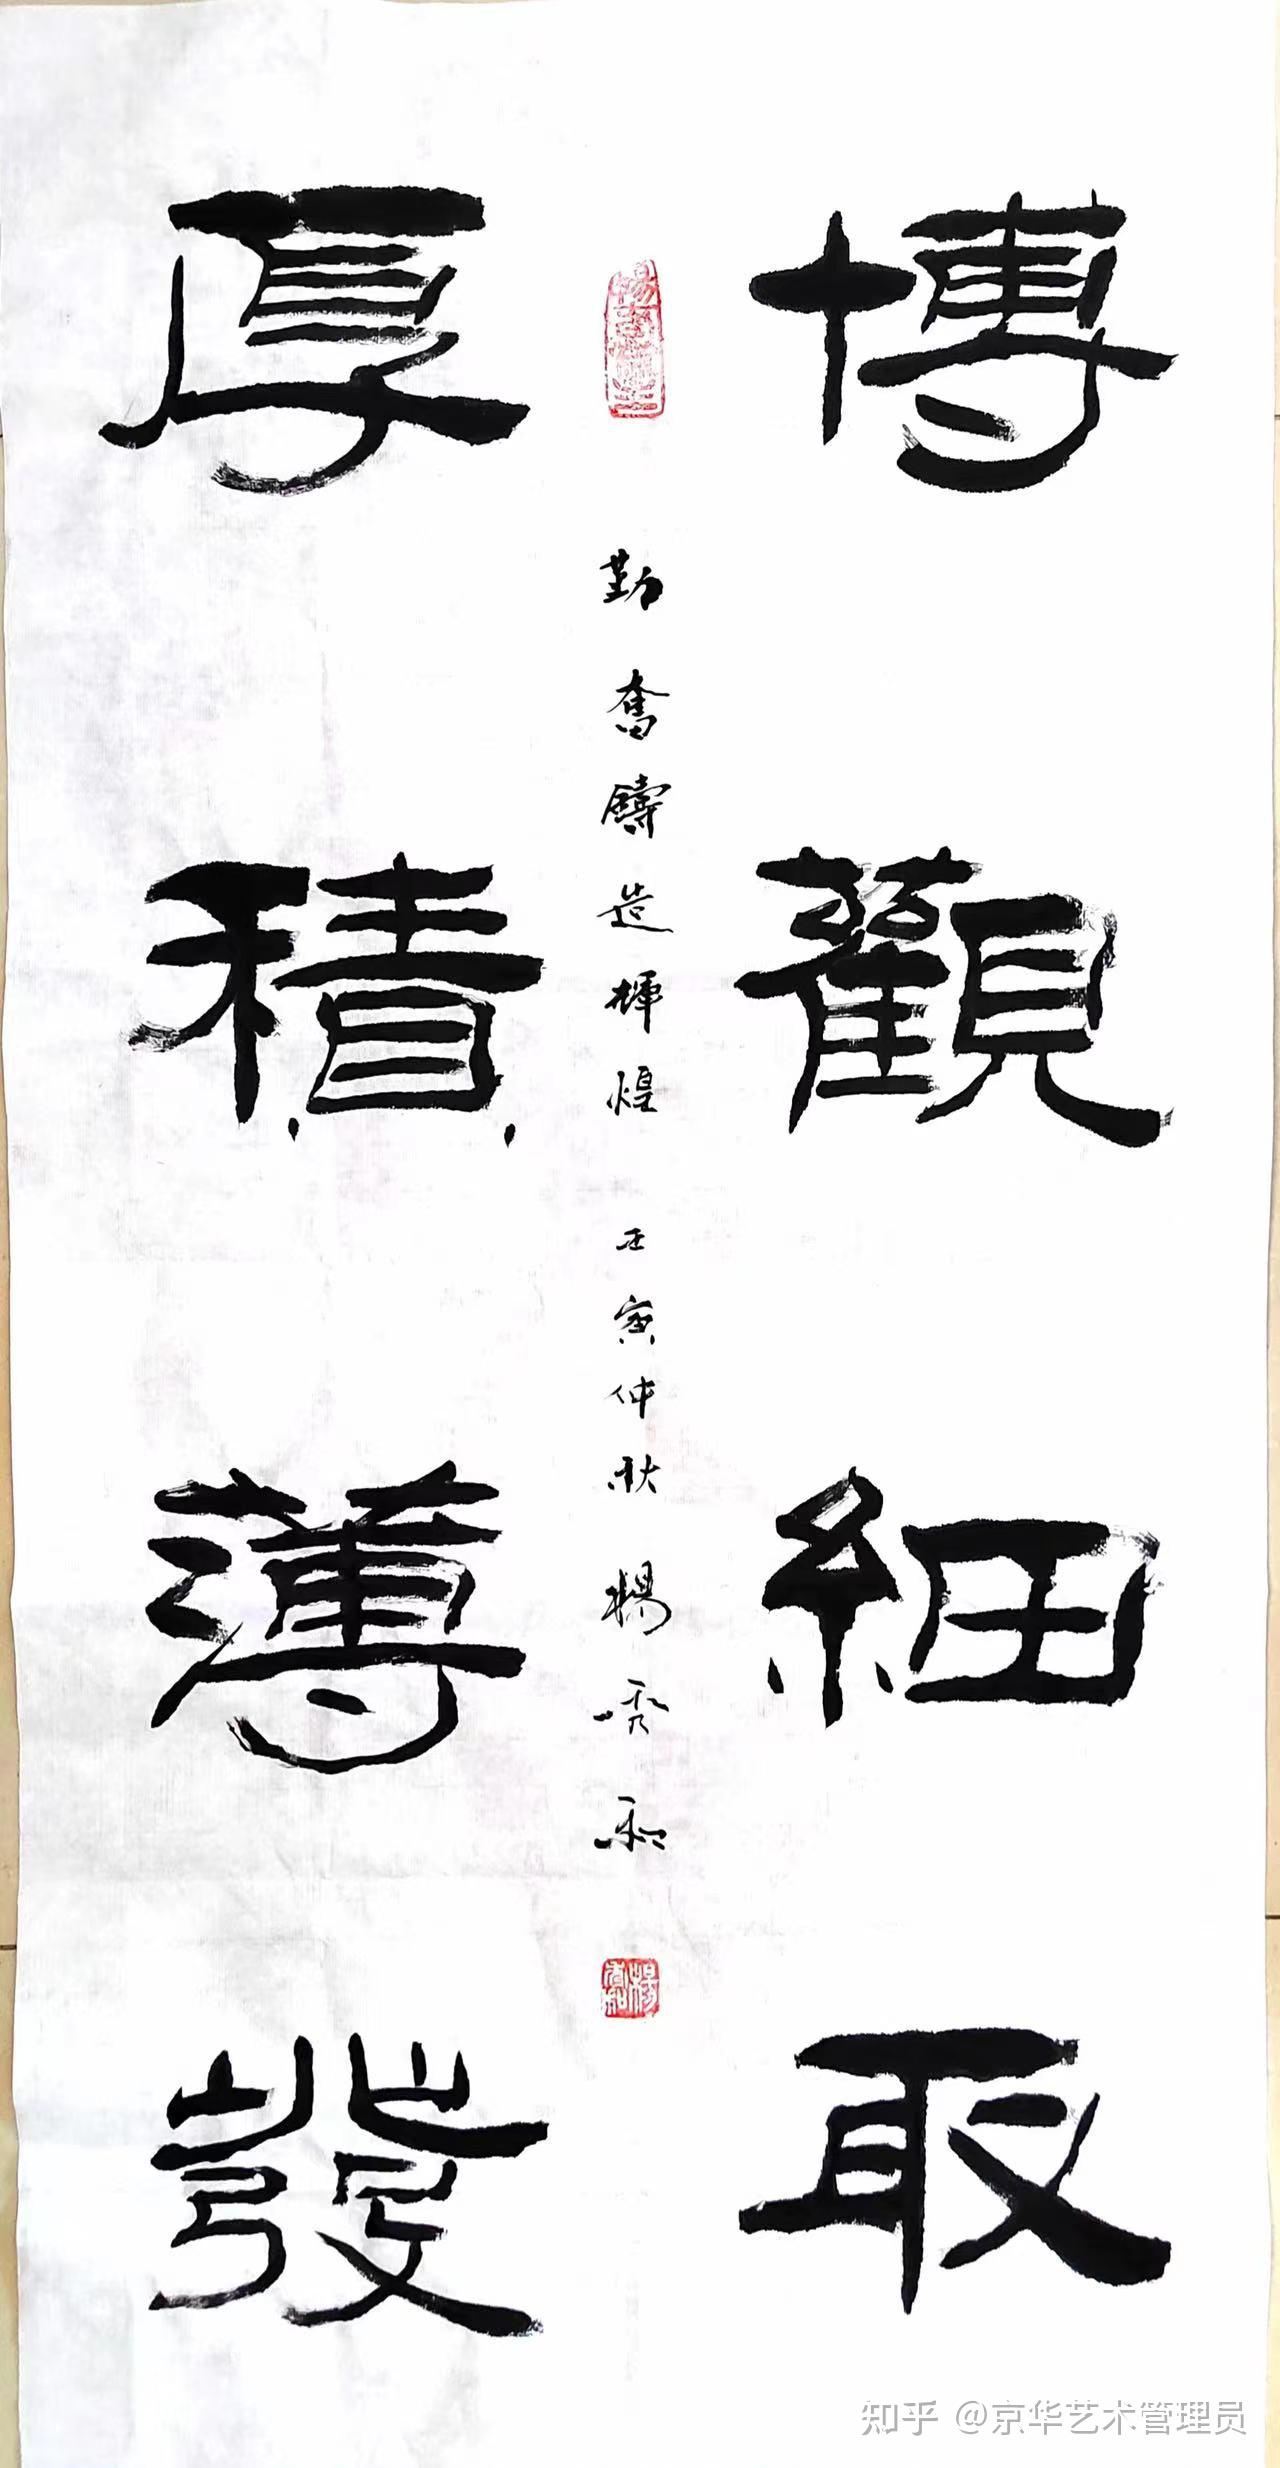 博觀細取
厚積薄發
勤奮鑄造輝煌 壬寅仲秋 楊秀和
知乎 @京华艺术管理员